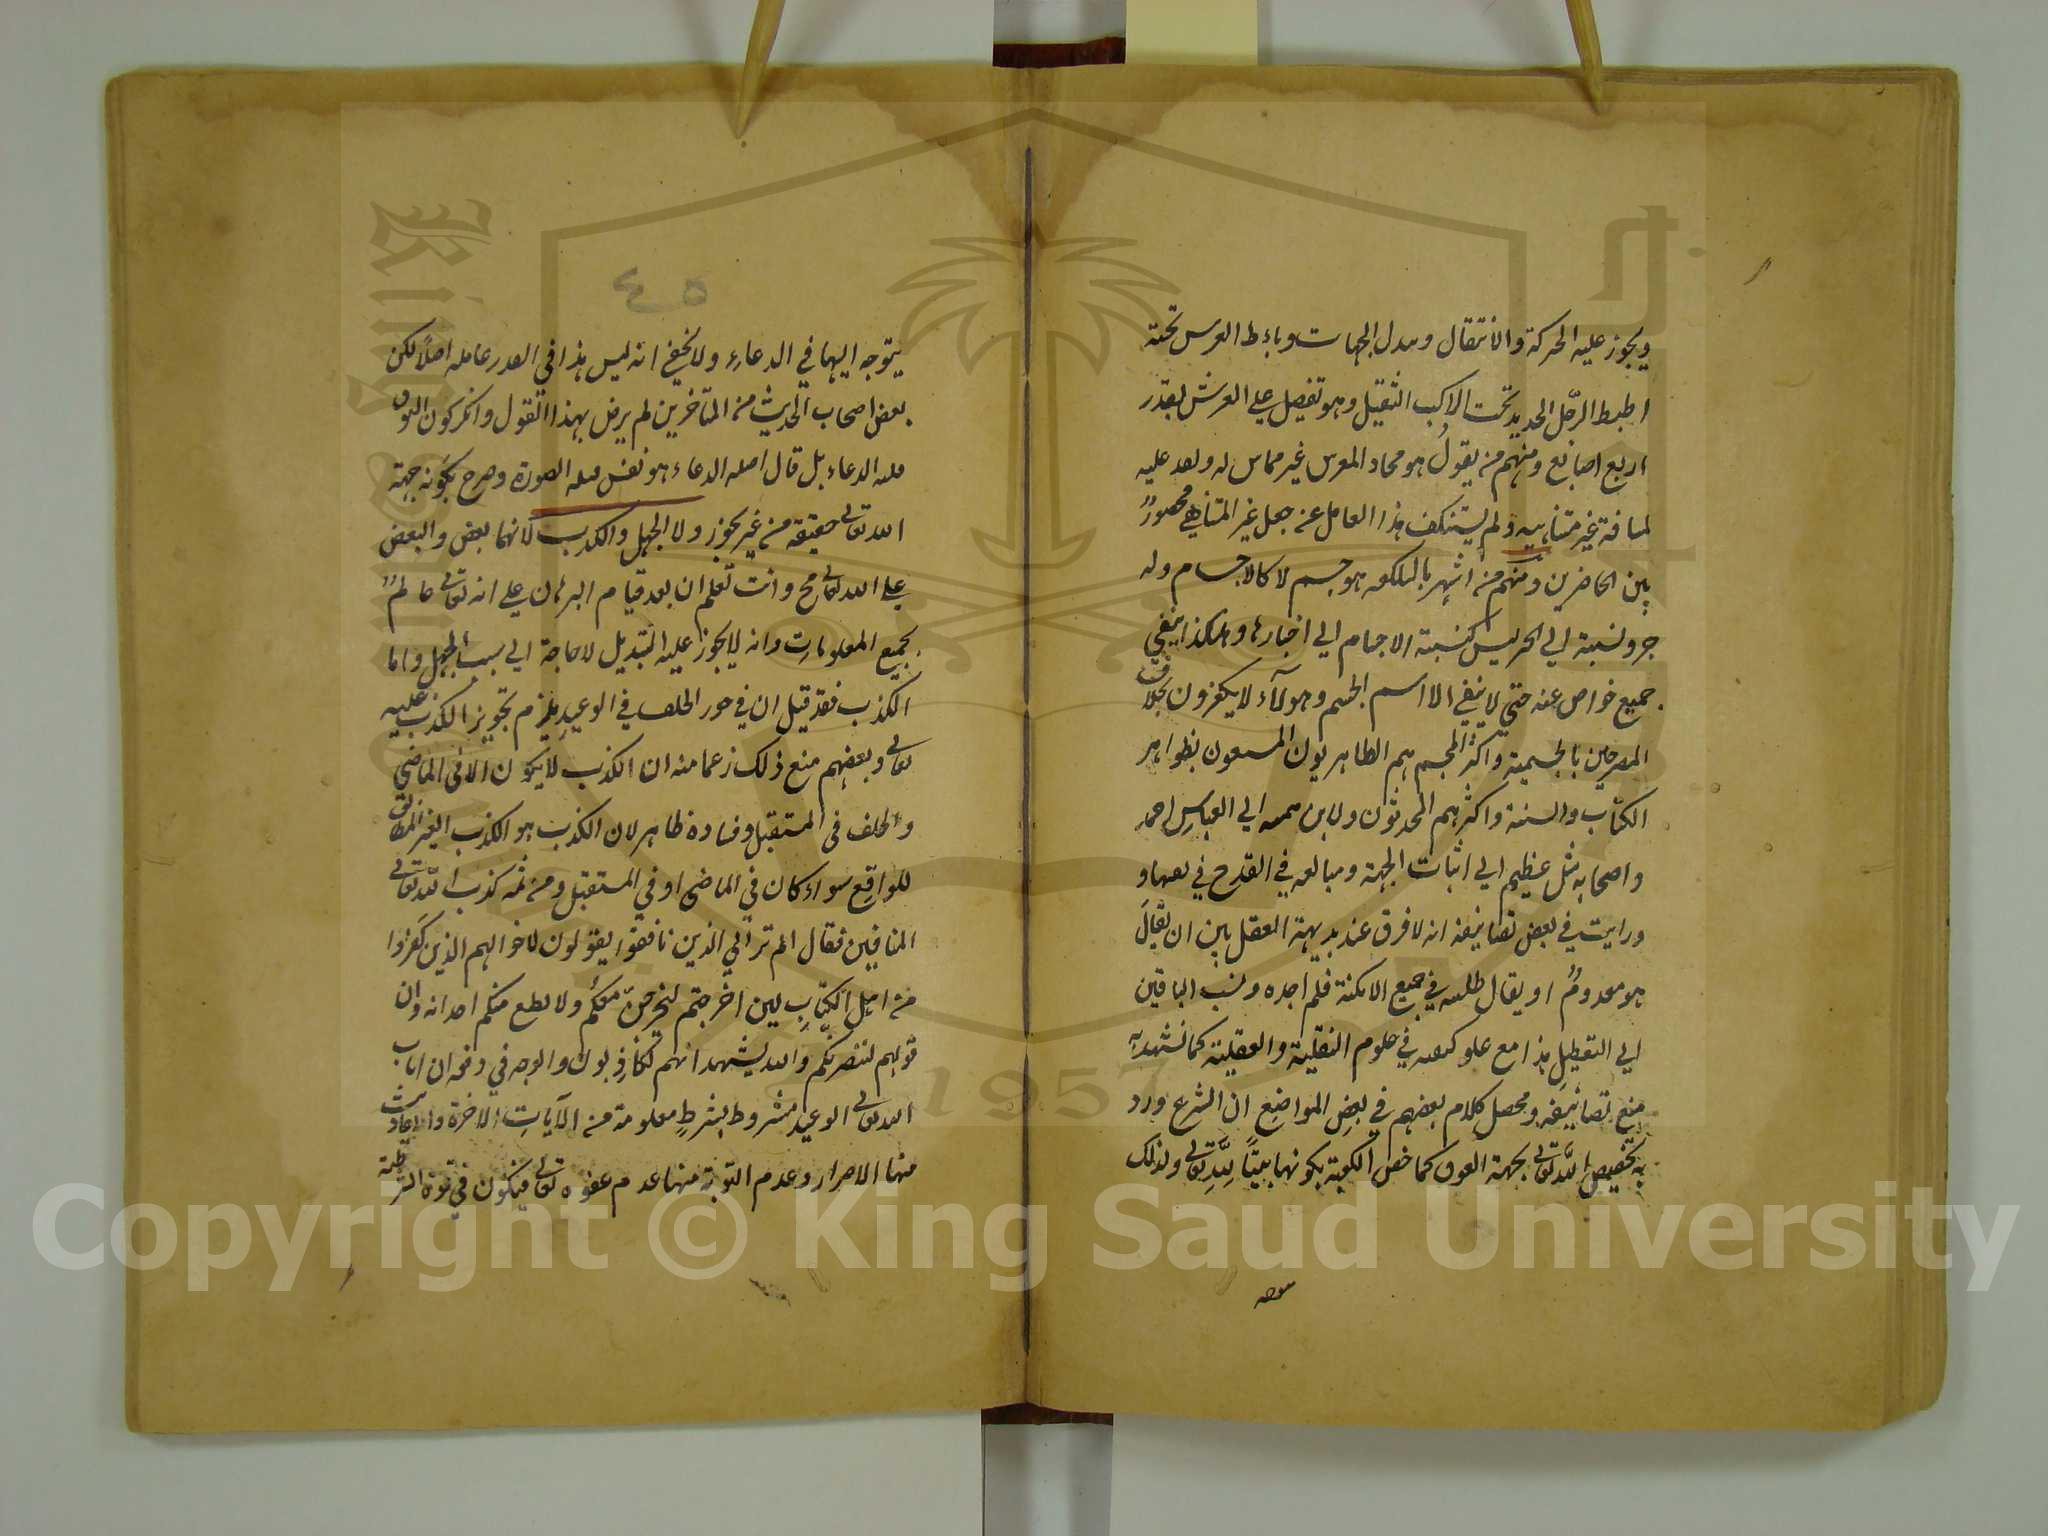 ويجوز عليه الحركة والانتقال وبدل الجهات وياءط العرس تحته
اطيط الرحل الحديد تحت الراكب الثقيل وهو تفضيل على العرش بقدر
اربع اصابع ومنهم من يقول هو محاد العرس غير مماس له وبعده عليه
لمسافة غير متناهيه ولم يستنكف هذا العامل عن جعل غير المتناهي محصورٌ
بين الحاضرين ومنهم من اشهر بالبلكفه هو جسم لا كالاجسام وله
ونسبته الى الحيز ليس كنسبة الاجسام الى احيازها وهكذا ينفي
جميع خواص عنه حتى لا يبقى الا اسم الجسم وهولآء لا يكفرون بخلاف
المصرحين بالجسمية واكثر المجسم هم الظاهريون المتبعون بظواهر
الكتاب والسنة واكثرهم المحدثون ولابن تيميه ابي العباس احمد
واصحابه ميل عظيم الى اثبات الجهة ومبالغة في القدح في نفيها و
ورايت في بعض تصانيفه انه لا فرق عند بديهة العقل بين ان يقال
هو معدومٌ او يقال طلبته في جميع الامكنة فلم اجده ونسب الباقين
الى التعطيل هذا مع علو كعبه في علوم النقلية والعقلية كما تشهد به
من تصانيفه ومحصل كلام بعضهم في بعض المواضع ان الشرع ورد
به تخصيص الله تعالى بجهة الفوق كما خص الكعبة بكونها بيتًا لله تعالى ولذلك
٤٥
يتوجه اليها في الدعاء ولا يخفى انه ليس هذا في القدر عامله اصلًا لكن
بعض اصحاب الحديث من المتأخرين لم يرض بهذا القول وانكر كون الفوق
قبله الدعاء بل قال اصله الدعاء هو نفس قبله الصورة وصرح بكونه جهة
الله تعالى حقيقة من غير تجوز ولا الجهل والكذب لانهما بعض والبعض
على الله تعالى مح وانت تعلم ان بعد قيام البرهان على انه تعالى عالمٌ
بجميع المعلومات وانه لا يجوز عليه التبديل لا حاجة الى سبب الجهل واما
الكذب فقد قيل ان في جور الخلف في الوعيد يلزم تجويز الكذب عليه
تعالى وبعضهم منع ذلك زعما منه ان الكذب لا يكون الا في الماضي
والخلف في المستقبل وفساده ظاهر لان الكذب هو الكذب الغير المطابق
للواقع سواء كان في الماضي او في المستقبل ومن ثمه كذب الله تعالى
المنافقين فقال الم تر الى الذين نافقوا يقولون لاخوانهم الذين كفروا
من اهل الكتاب لين اخرجتم لنخرجن معكم ولا نطع منكم احدا انه وان
قولهم لننصرنكم والله يشهد انهم لكاذبون والوجه في دفعه ان اياب
الله تعالى الوعيد مشروط بشرط معلومة من الآيات الاخرة والاحاديث
منها الاصرار وعدم التوبة منها عدم عفوه تعالى فيكون في قوة الشرطية